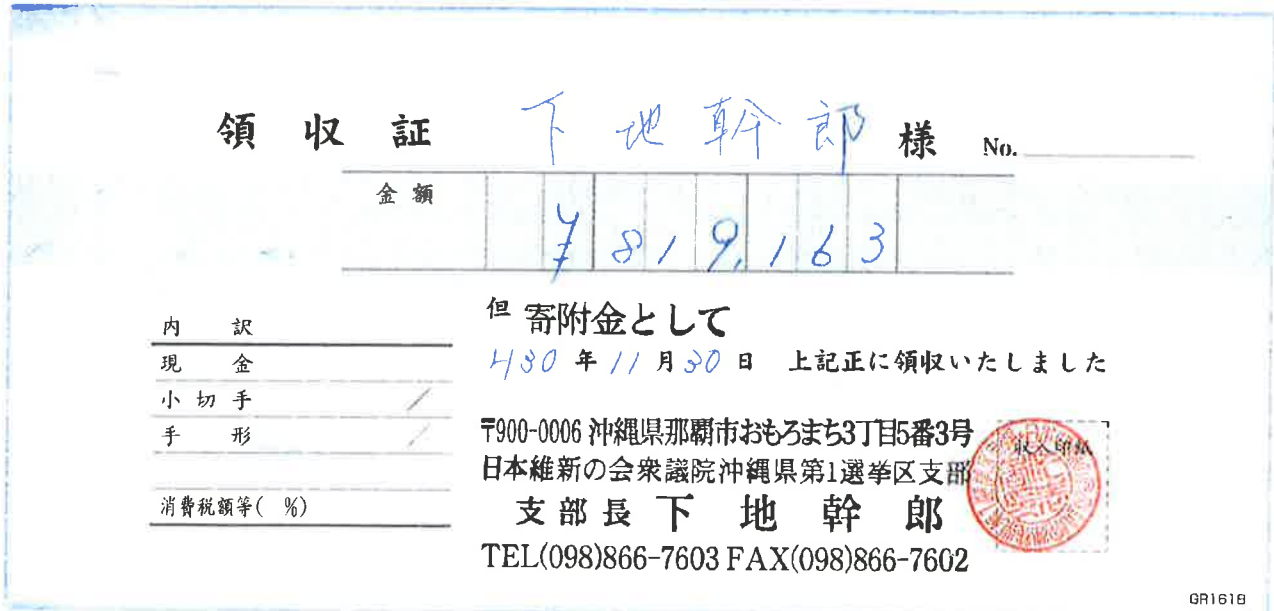 領収証 下地幹郎 様 No.
金額 ¥819,163
但 寄附金として
H30年11月30日 上記正に領収いたしました
内訳
現金
小切手
手形
消費税額等( %)
〒900-0006 沖縄県那覇市おもろまち3丁目5番3号
日本維新の会衆議院沖縄県第1選挙区支部
支部長 下地幹郎
TEL(098)866-7603 FAX(098)866-7602
収入印紙
GR1618